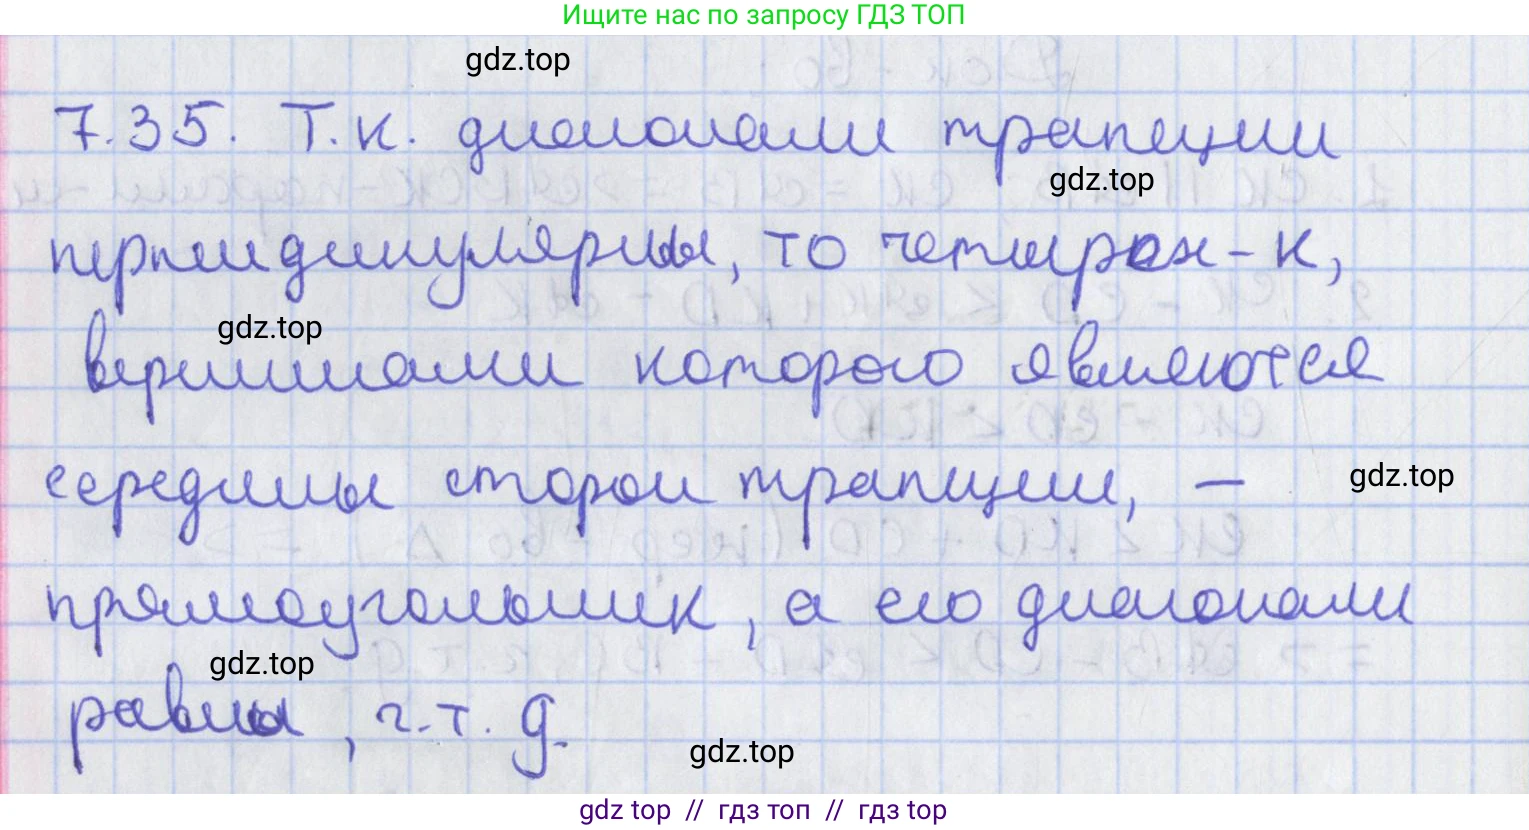 Ищите нас по запросу ГДЗ ТОП
gdz.top
7.35. Т.к. диагонали трапеции
gdz.top
перпендикулярны, то четырех-к,
gdz.top
вершинами которого являются
середины сторон трапеции, —
gdz.top
прямоугольник, а его диагонали
gdz.top
равны, ч.т.д.
gdz.top
gdz top // гдз топ // гдз top